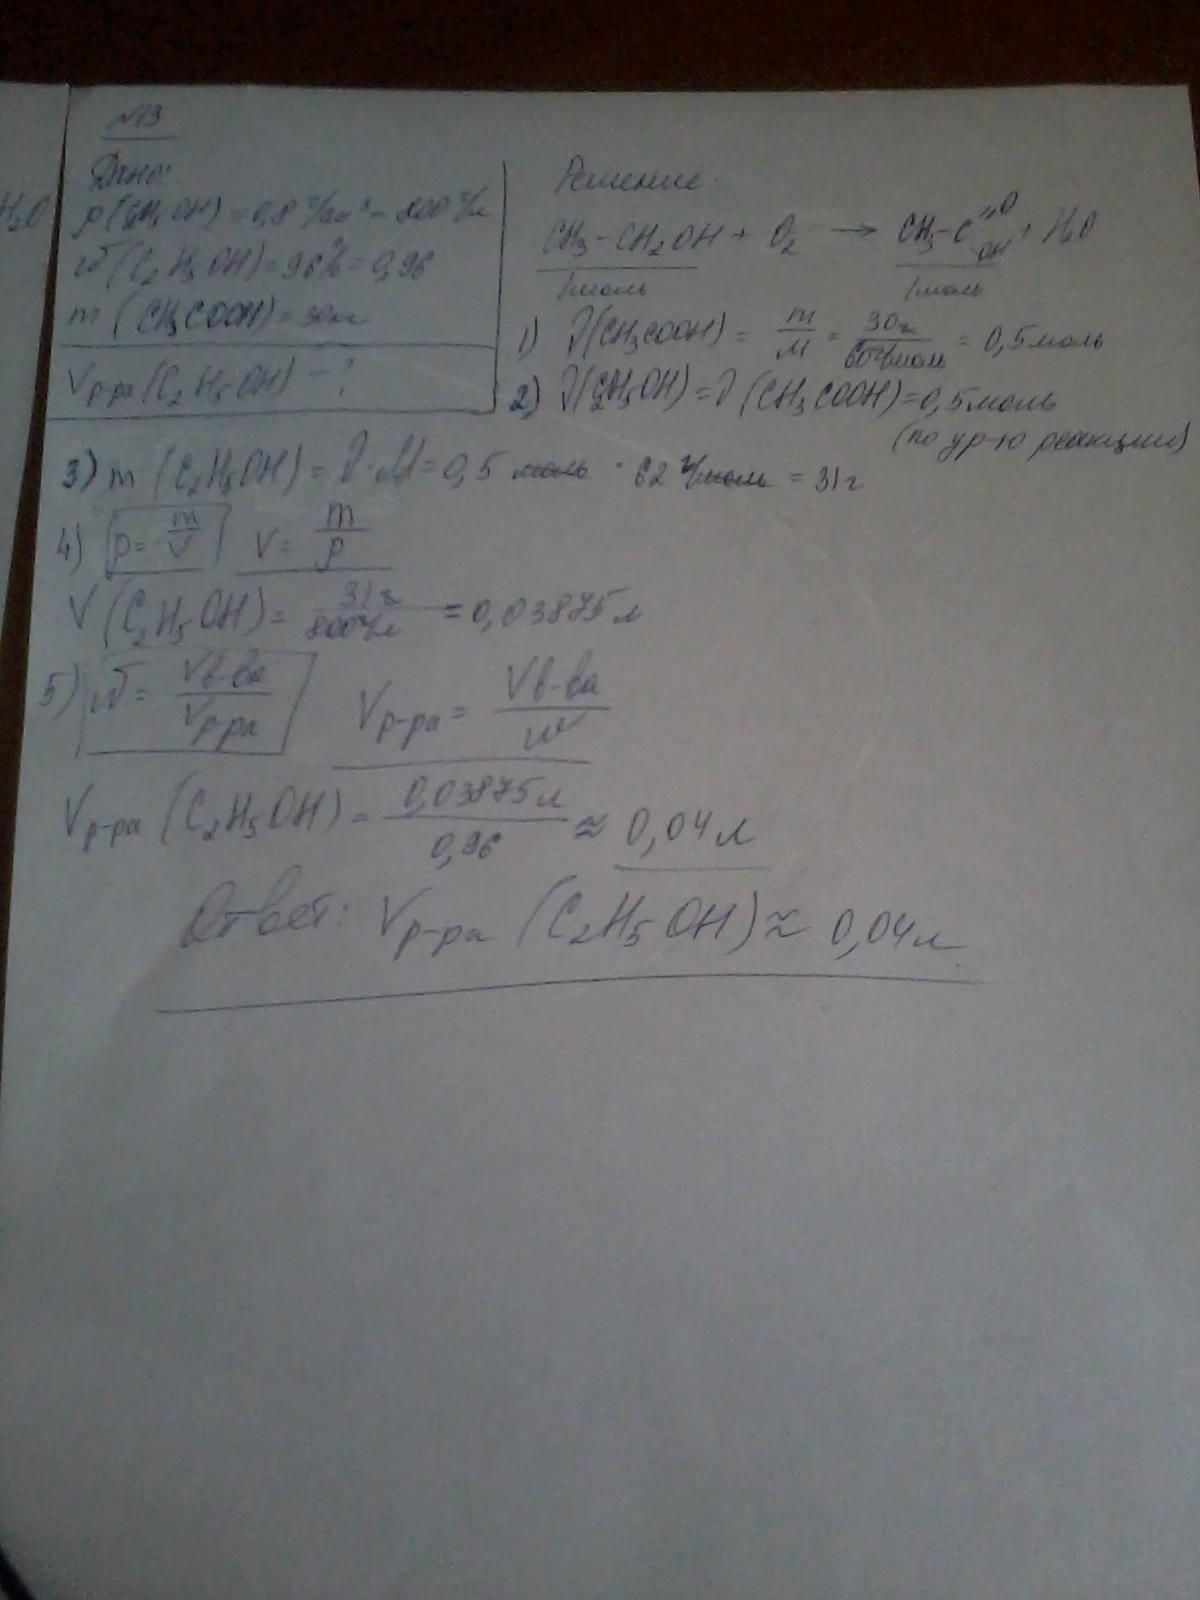 №13
Дано:
ρ(C2H5OH) = 0,8 г/см³ = 800 г/л
H2O
W(C2H5OH) = 96% = 0,96
m(CH3COOH) = 30 г
Vр-ра(C2H5OH) - ?
Решение.
CH3-CH2OH + O2 → CH3-C=O OH + H2O
1моль 1моль
1) ν(CH3COOH) = m/M = 30г/60г/моль = 0,5 моль
2) ν(C2H5OH) = ν(CH3COOH) = 0,5 моль
(по ур-ю реакции)
3) m(C2H5OH) = ν·M = 0,5 моль · 62 г/моль = 31 г
4) ρ = m/V V = m/ρ
V(C2H5OH) = 31г/800г/л = 0,03875 л
5) W = Vв-ва/Vр-ра Vр-ра = Vв-ва/W
Vр-ра(C2H5OH) = 0,03875л/0,96 ≈ 0,04 л
Ответ: Vр-ра(C2H5OH) ≈ 0,04 л.